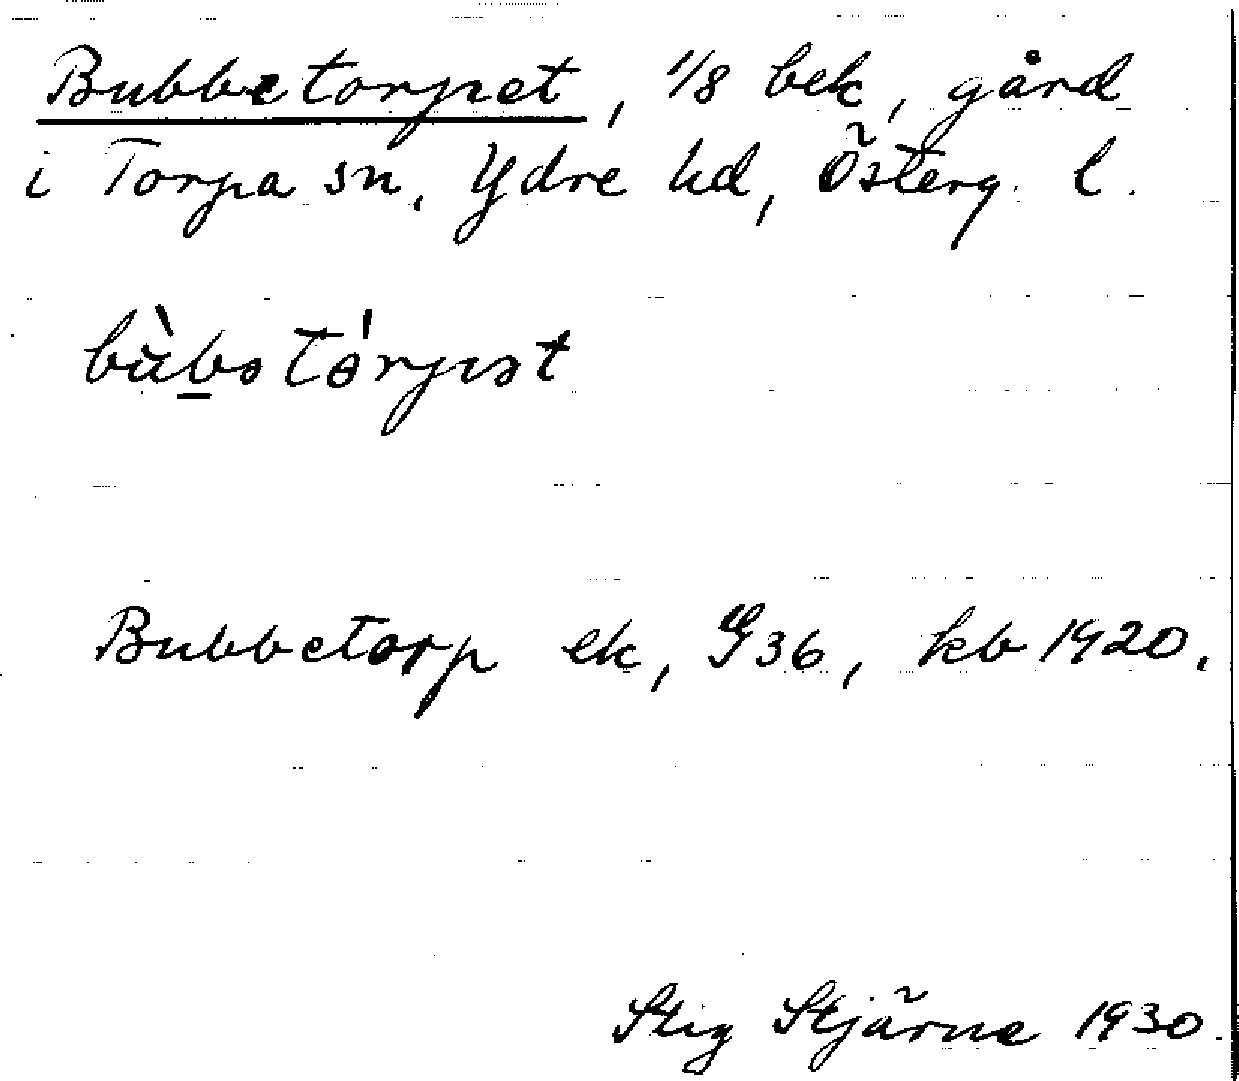 Bubbetorpet, 1/8 bek, gård
i Torpa sn, Ydre hd, Österg. l.
Bubbetorp ek, G36, kb 1920.
Stig Stjärne 1930.